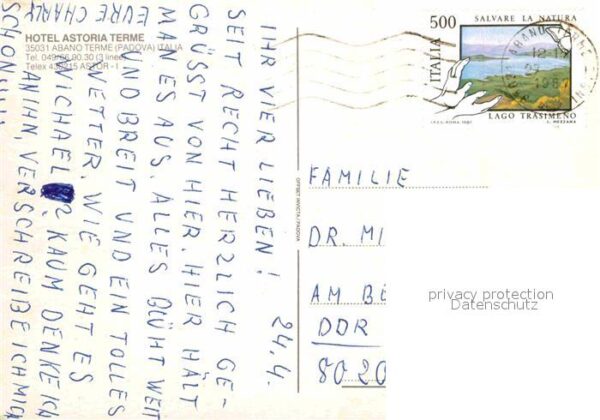 HOTEL ASTORIA TERME
35031 ABANO TERME (PADOVA) ITALIA
Tel. 049/66.90.30 (3 linee)
Telex 430215 ASTOR - I
24.4.
IHR VIER LIEBEN!
SEIT RECHT HERZLICH GE-
GRÜSST VON HIER. HIER HÄLT
MAN ES AUS, ALLES BLÜHT WEIT
UND BREIT UND EIN TOLLES
WETTER, WIE GEHT ES
MICHAEL? KAUM DENKE ICH
AN IHN, VERSCHREIBE ICH MICH
SCHON
EURE CHARLY
OFFSET INVICTA / PADOVA
500
SALVARE LA NATURA
ITALIA
LAGO TRASIMENO
I.P.Z.S. - ROMA - 1987
L. MEZZANA
ABANO TERME
FAMILIE
DR. MI
AM BE
DDR
8020
privacy protection
Datenschutz